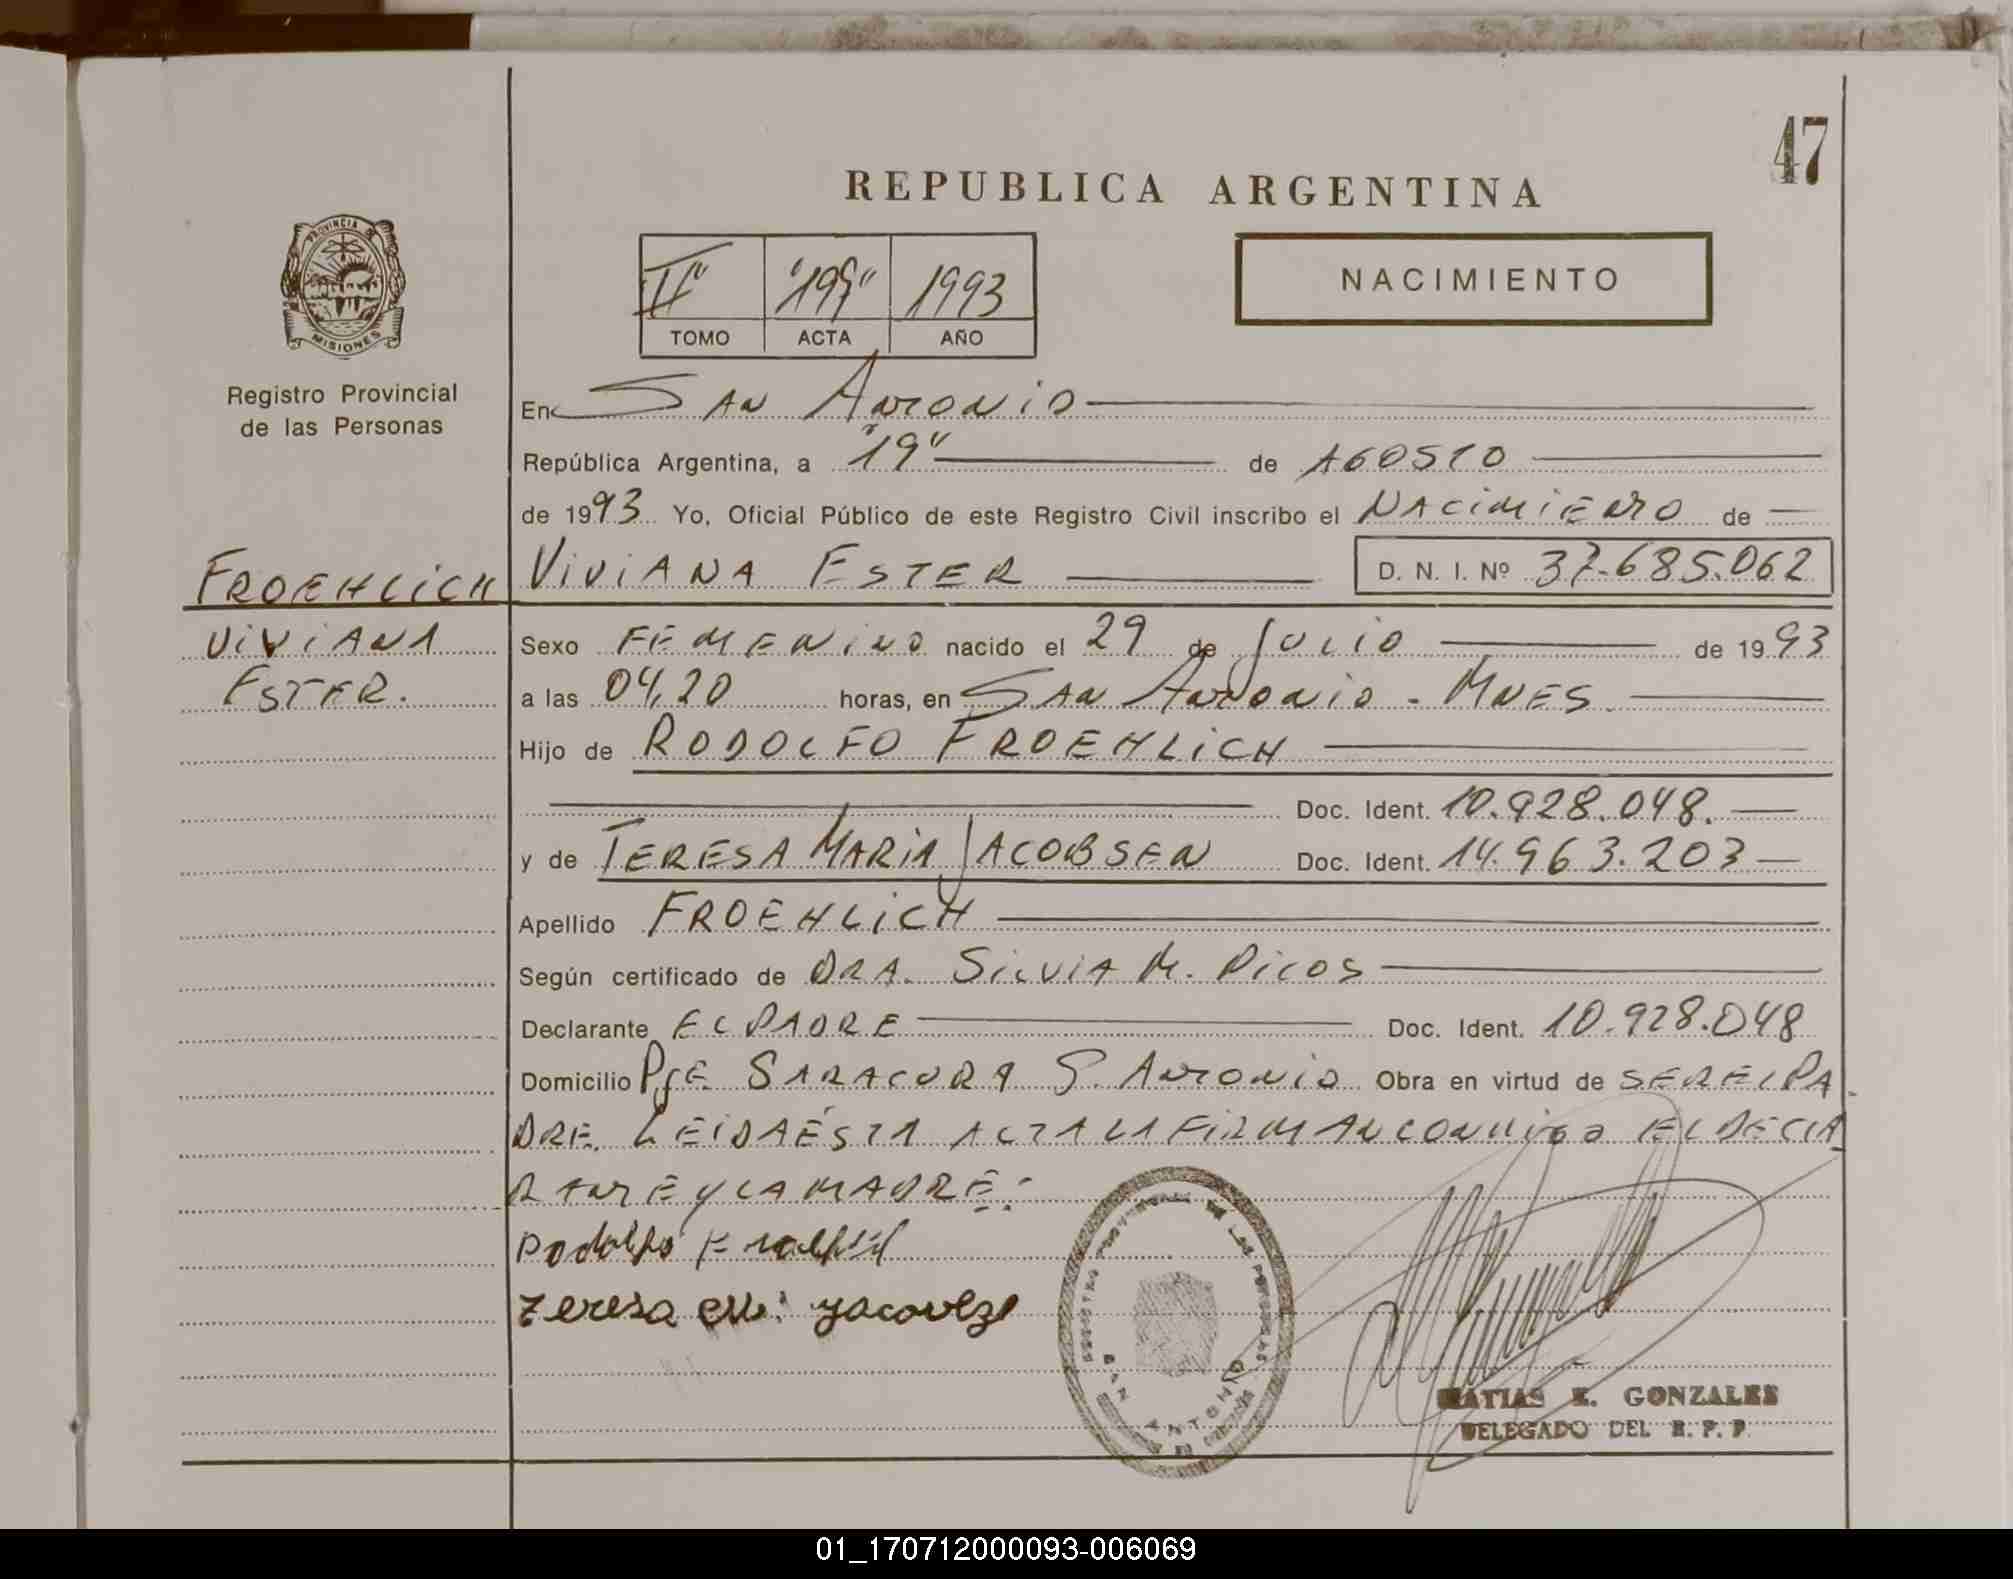 47
REPUBLICA ARGENTINA
PROVINCIA DE
MISIONES
Registro Provincial
de las Personas
"II" "199" 1993
TOMO ACTA AÑO
NACIMIENTO
En SAN ANTONIO
República Argentina, a "19" de AGOSTO
de 1993 Yo, Oficial Público de este Registro Civil inscribo el NACIMIENTO de
FROEHLICH VIVIANA ESTER D. N. I. Nº 37.685.062
VIVIANA Sexo FEMENINO nacido el 29 de JULIO de 1993
ESTER. a las 04,20 horas, en SAN ANTONIO - MNES.
Hijo de RODOLFO FROEHLICH
Doc. Ident. 10.928.048.
y de TERESA MARIA JACOBSEN Doc. Ident. 14.963.203
Apellido FROEHLICH
Según certificado de DRA. SILVIA M. PICOS
Declarante EL PADRE Doc. Ident. 10.928.048
Domicilio Pje. SARACURA S. ANTONIO Obra en virtud de SER EL PA
DRE. LEIDA ÉSTA ACTA LA FIRMAN CONMIGO EL DECLA
RANTE Y LA MADRE:
Rodolfo
Teresa
SAN ANTONIO
MATIAS E. GONZALES
DELEGADO DEL R. P. P.
01_170712000093-006069